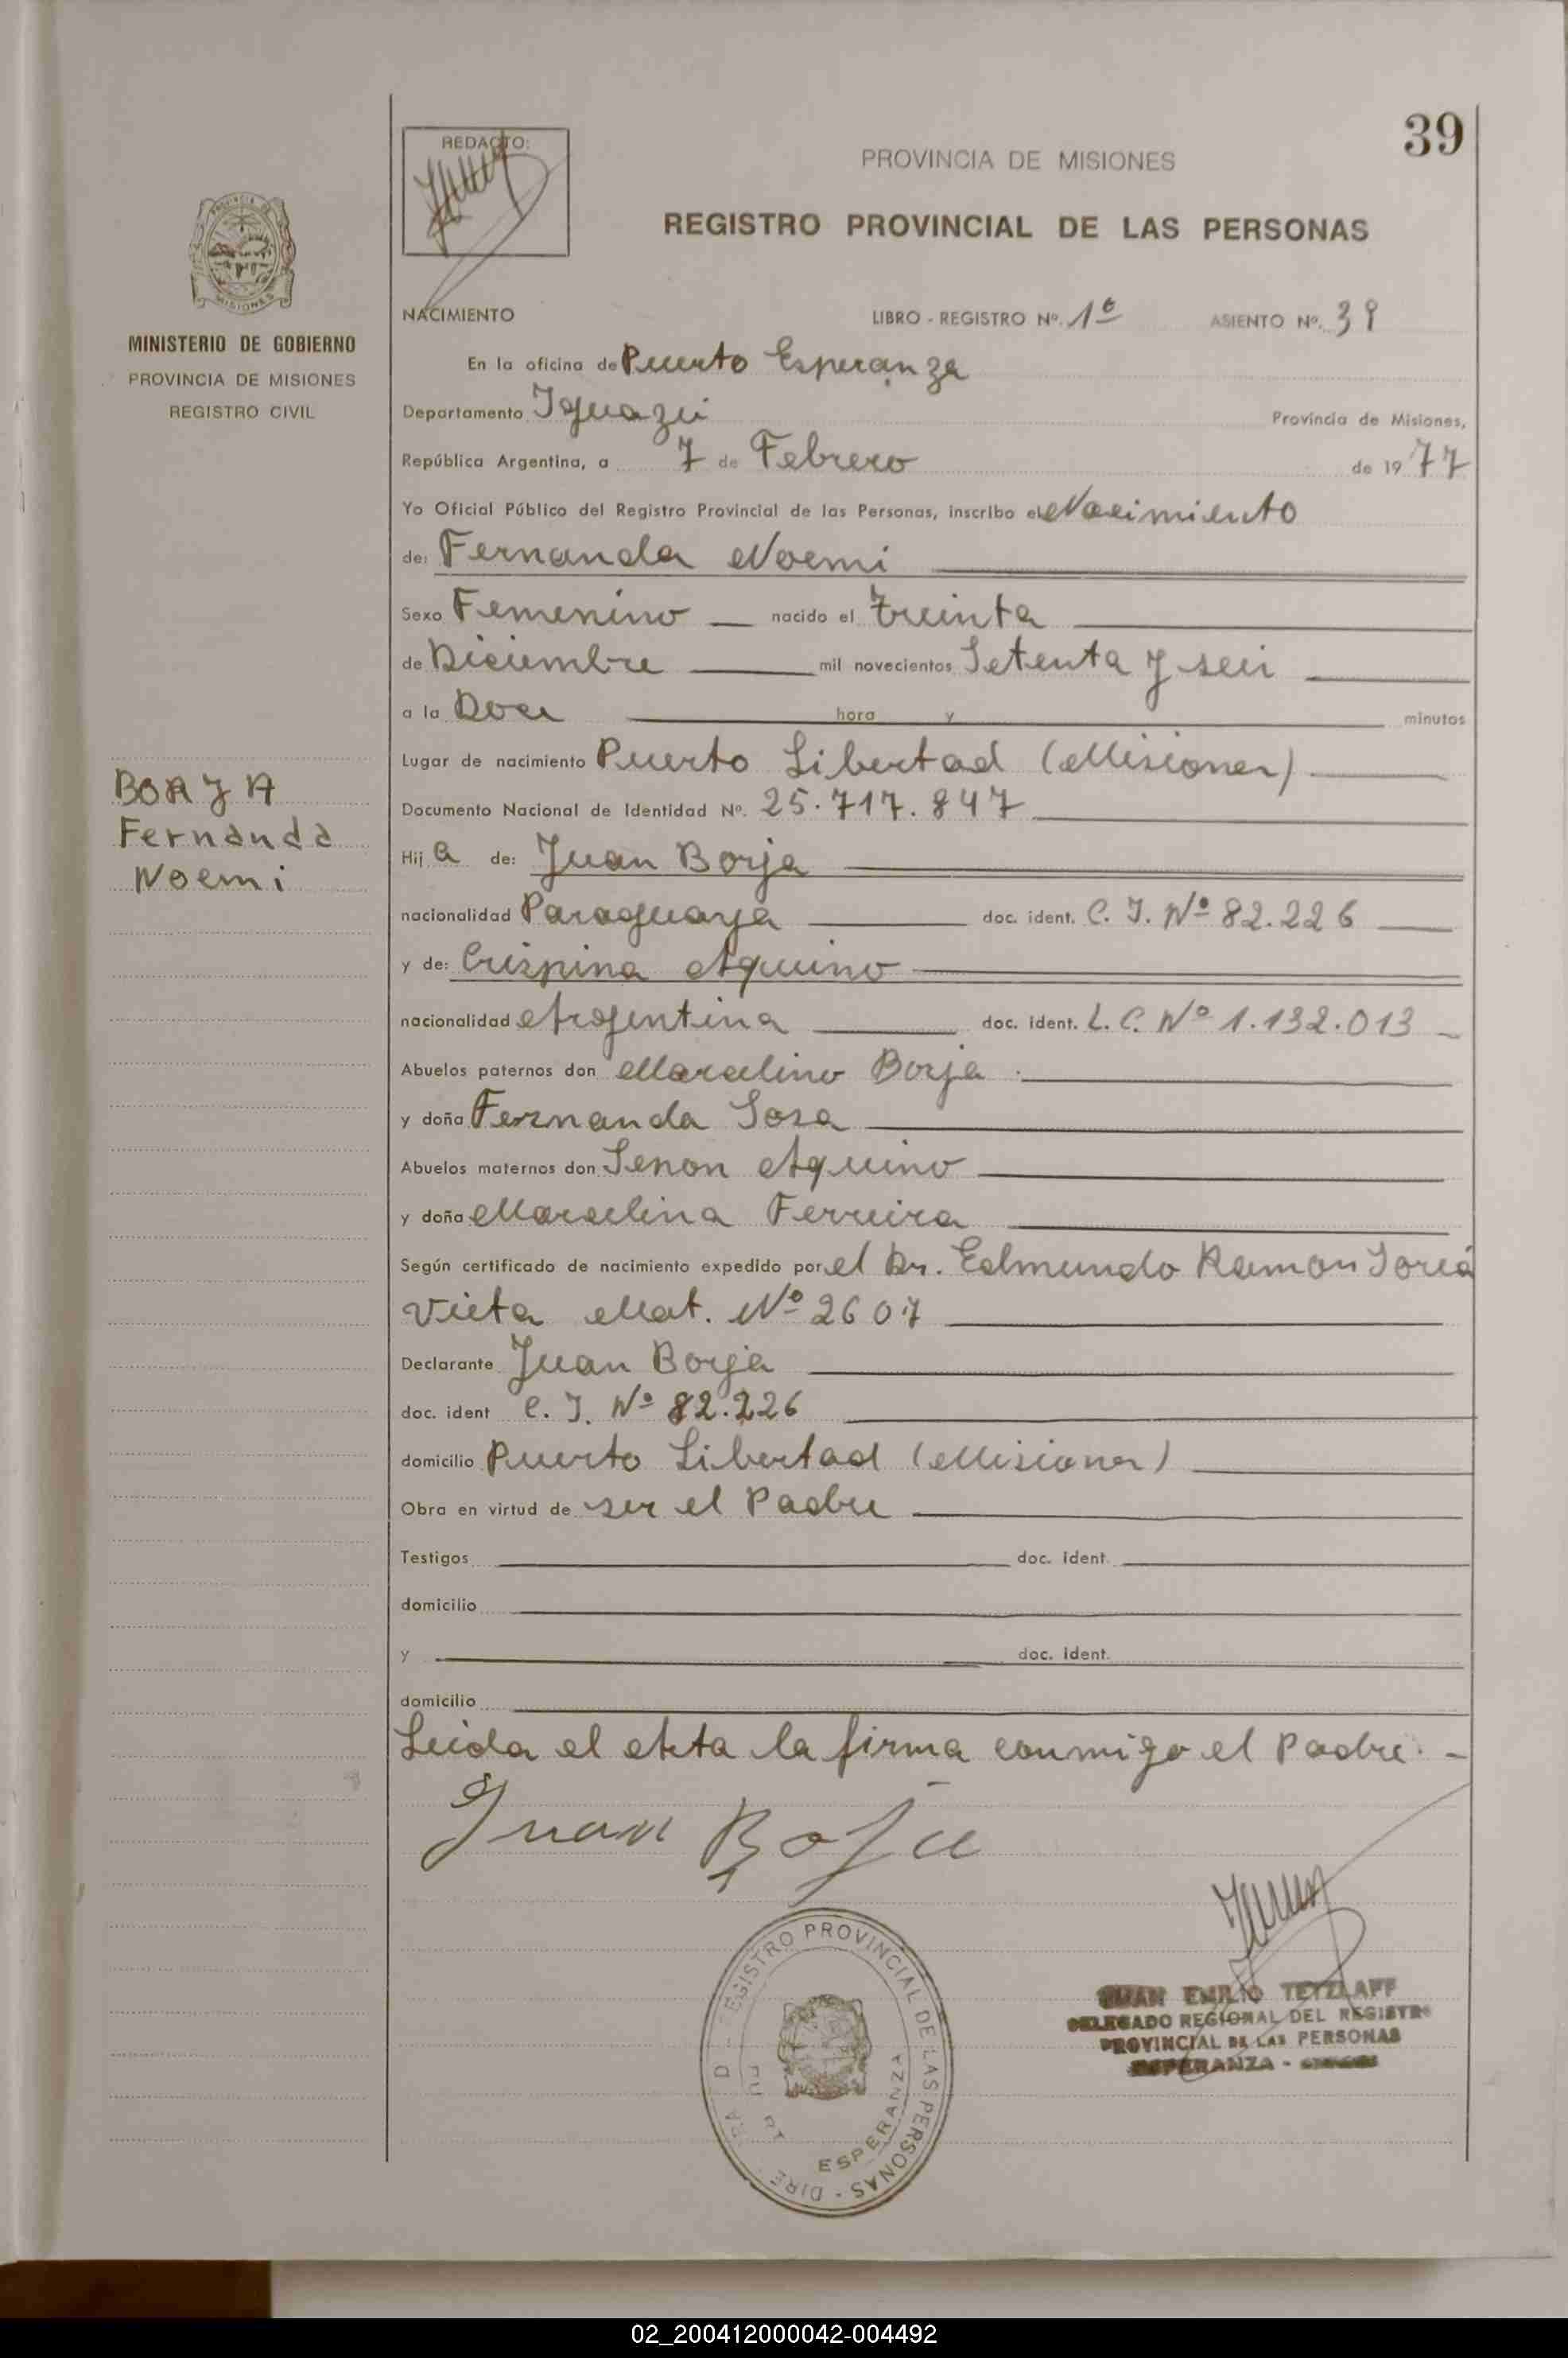 39
REDACTO:
PROVINCIA DE MISIONES
REGISTRO PROVINCIAL DE LAS PERSONAS
MISIONES
MINISTERIO DE GOBIERNO
PROVINCIA DE MISIONES
REGISTRO CIVIL
NACIMIENTO LIBRO - REGISTRO Nº. 1º ASIENTO Nº. 39
En la oficina de Puerto Esperanza
Departamento Iguazú Provincia de Misiones,
República Argentina, a 7 de Febrero de 1977
Yo Oficial Público del Registro Provincial de las Personas, inscribo el Nacimiento
de: Fernanda Noemi
Sexo Femenino nacido el treinta
de Diciembre mil novecientos Setenta y seis
a la Doce hora y minutos
Lugar de nacimiento Puerto Libertad (Misiones)
Documento Nacional de Identidad Nº. 25.717.847
Hij a de: Juan Borja
nacionalidad Paraguaya doc. ident. C. I. Nº 82.226
y de: Crispina Aquino
nacionalidad Argentina doc. ident. L. C. Nº 1.132.013
Abuelos paternos don Marcelino Borja
y doña Fernanda Sosa
Abuelos maternos don Senon Aquino
y doña Marcelina Ferreira
Según certificado de nacimiento expedido por el Dr. Edmundo Ramon
Mat. Nº 2607
Declarante Juan Borja
doc. ident C. I. Nº 82.226
domicilio Puerto Libertad (Misiones)
Obra en virtud de ser el Padre
Testigos doc. ident.
domicilio
y doc. ident.
domicilio
Leida el Acta la firma conmigo el Padre. -
BORJA
Fernanda
Noemi
Juan Borja
REGISTRO PROVINCIAL DE LAS PERSONAS - DIRE
ESPERANZA
JUAN EMILIO TETZLAFF
DELEGADO REGIONAL DEL REGISTRO
PROVINCIAL DE LAS PERSONAS
ESPERANZA -
02_200412000042-004492